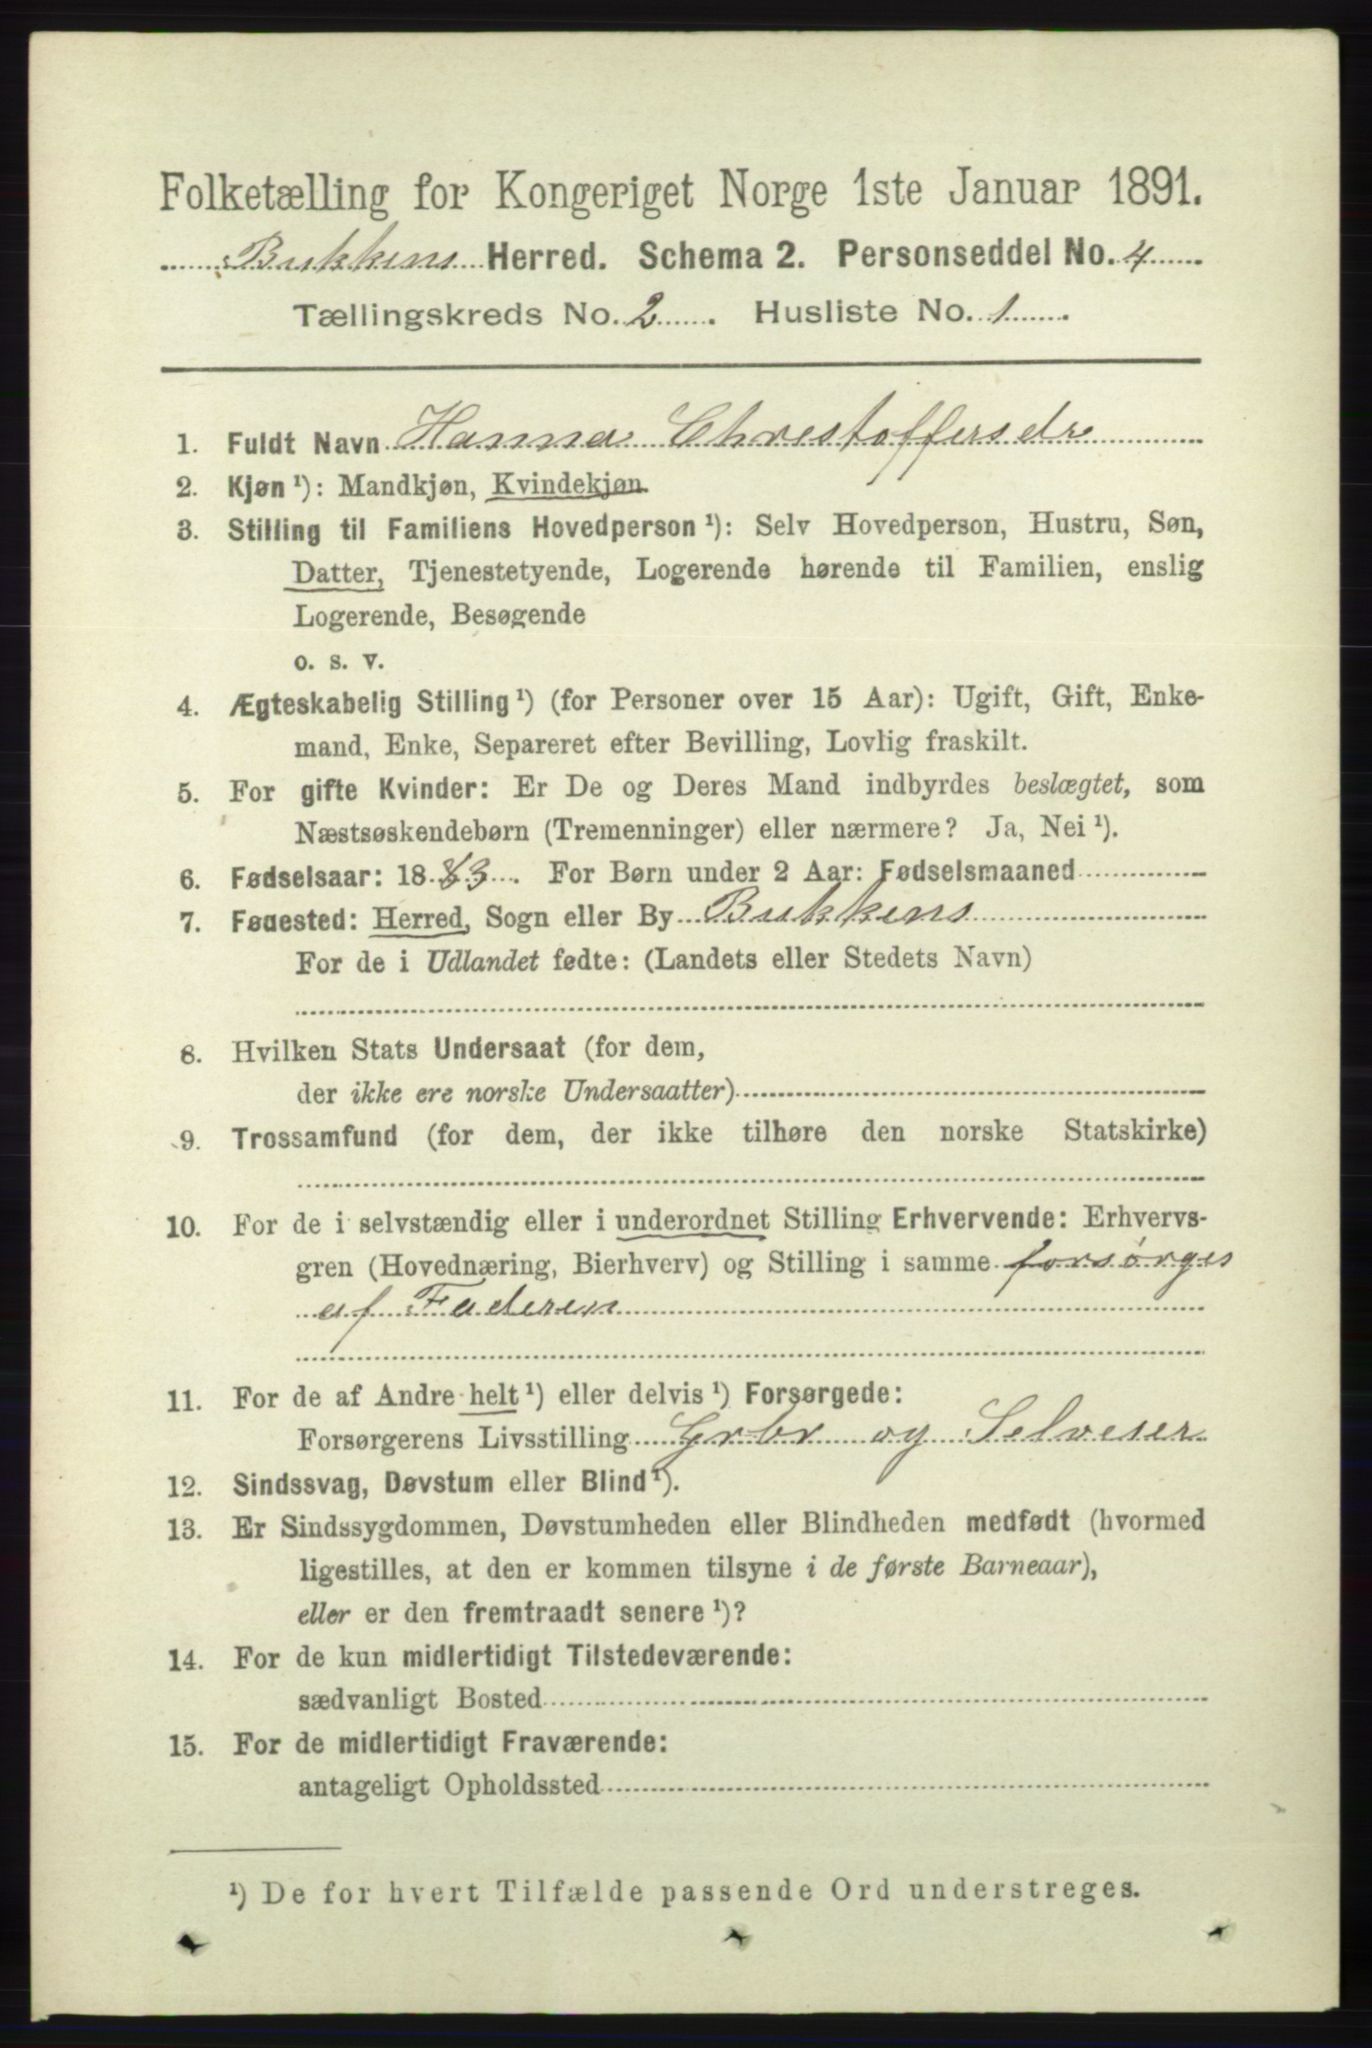 Folketælling for Kongeriget Norge 1ste Januar 1891.
Bukkens Herred. Schema 2. Personseddel No. 4
Tællingskreds No. 2. Husliste No. 1.
1. Fuldt Navn Hanna Chrestoffersdr
2. Kjøn ¹): Mandkjøn, Kvindekjøn
3. Stilling til Familiens Hovedperson ¹): Selv Hovedperson, Hustru, Søn,
Datter, Tjenestetyende, Logerende hørende til Familien, enslig
Logerende, Besøgende
o. s. v.
4. Ægteskabelig Stilling ¹) (for Personer over 15 Aar): Ugift, Gift, Enke-
mand, Enke, Separeret efter Bevilling, Lovlig fraskilt.
5. For gifte Kvinder: Er De og Deres Mand indbyrdes beslægtet, som
Næstsøskendebørn (Tremenninger) eller nærmere? Ja, Nei ¹).
6. Fødselsaar: 1883. For Børn under 2 Aar: Fødselsmaaned
7. Fødested: Herred, Sogn eller By Bukkens
For de i Udlandet fødte: (Landets eller Stedets Navn)
8. Hvilken Stats Undersaat (for dem,
der ikke ere norske Undersaatter)
9. Trossamfund (for dem, der ikke tilhøre den norske Statskirke)
10. For de i selvstændig eller i underordnet Stilling Erhvervende: Erhvervs-
gren (Hovednæring, Bierhverv) og Stilling i samme forsørges
af Faderen
11. For de af Andre helt ¹) eller delvis ¹) Forsørgede:
Forsørgerens Livsstilling Grbr og Selveier
12. Sindssvag, Døvstum eller Blind ¹).
13. Er Sindssygdommen, Døvstumheden eller Blindheden medfødt (hvormed
ligestilles, at den er kommen tilsyne i de første Barneaar),
eller er den fremtraadt senere ¹)?
14. For de kun midlertidigt Tilstedeværende:
sædvanligt Bosted
15. For de midlertidigt Fraværende:
antageligt Opholdssted
¹) De for hvert Tilfælde passende Ord understreges.